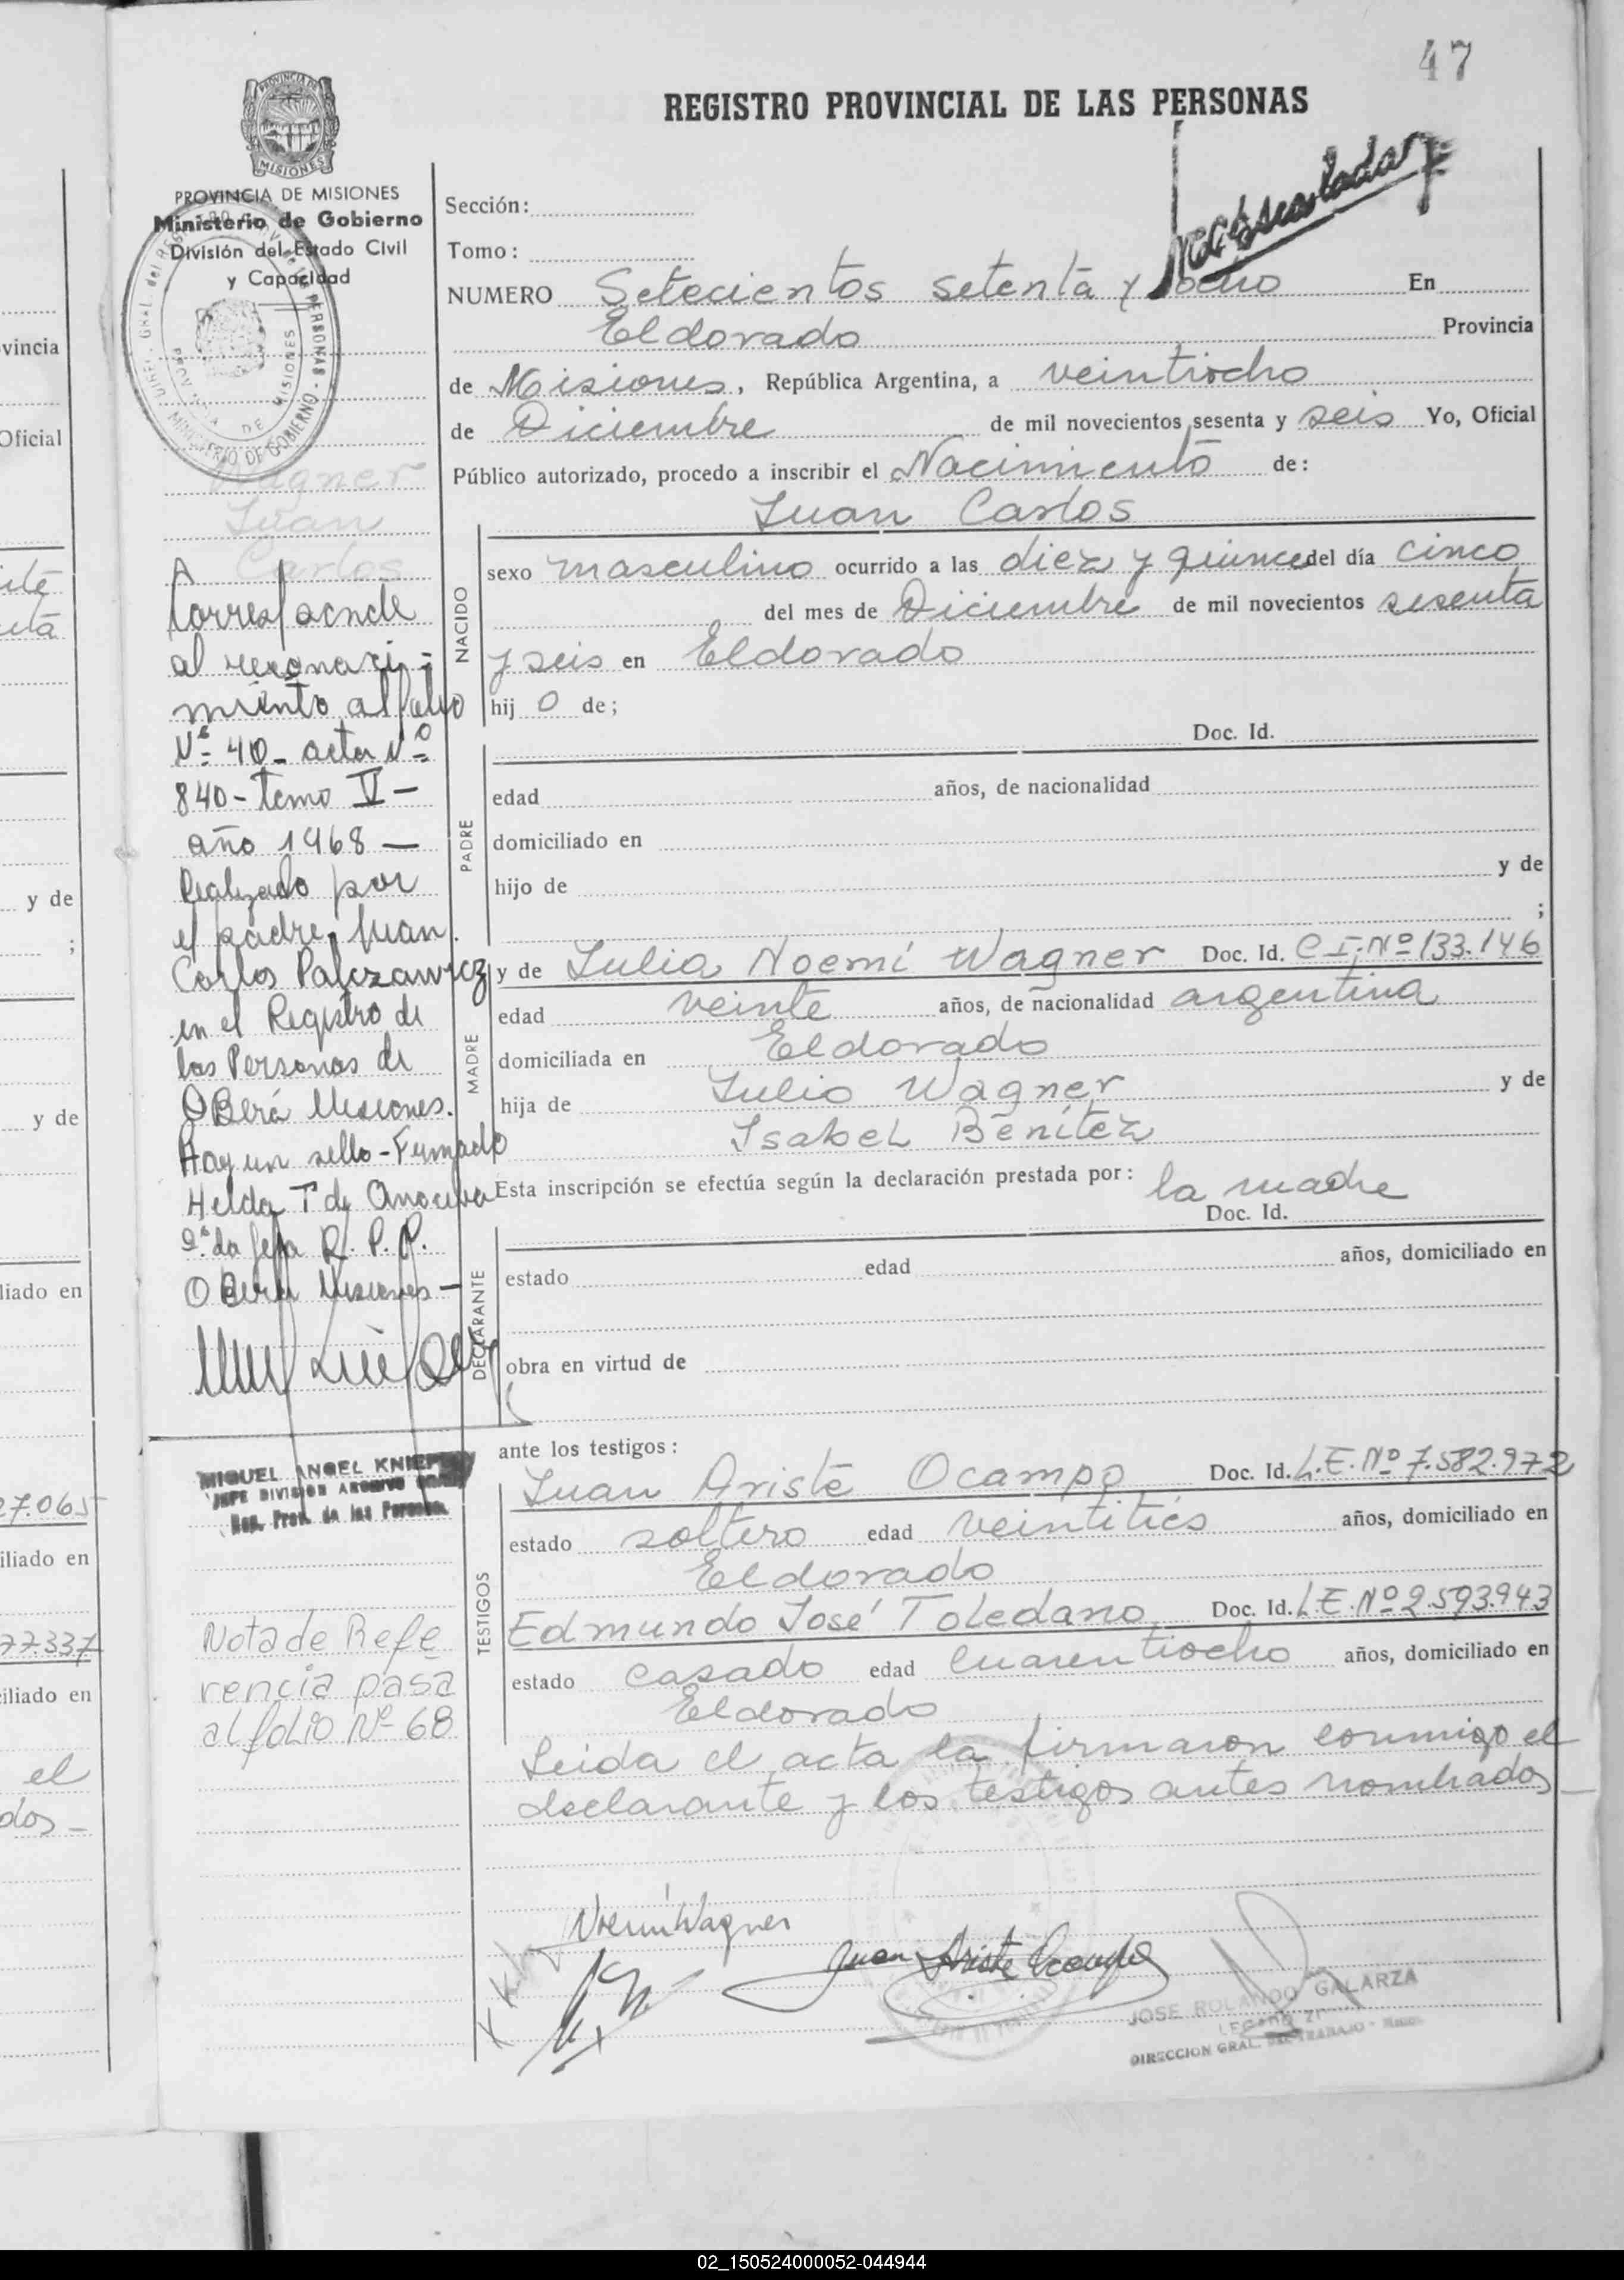 47
REGISTRO PROVINCIAL DE LAS PERSONAS
PROVINCIA DE
MISIONES
PROVINCIA DE MISIONES
Ministerio de Gobierno
División del Estado Civil
y Capacidad
Wagner
Juan
Carlos
A
Corresponde
al reconoci-
miento al folio
Nº 40- acta Nº
840- Tomo V-
año 1968 —
Realizado por
el padre Juan
Carlos
en el Registro de
las Personas de
OBerá Misiones.
Hay un sello-Firmado
Helda T de
2ª da Jefa R. P. P.
OBerá Misiones-
MIGUEL ANGEL
JEFE DIVISION ARCHIVO
Reg. Prov. de las Personas.
Nota de Refe
rencia pasa
al folio Nº 68
Sección:
Tomo:
NUMERO Setecientos setenta y ocho En
Eldorado Provincia
de Misiones, República Argentina, a veintiocho
de Diciembre de mil novecientos sesenta y seis Yo, Oficial
Público autorizado, procedo a inscribir el Nacimiento de:
Juan Carlos
NACIDO
sexo masculino ocurrido a las diez y quince del día cinco
del mes de Diciembre de mil novecientos sesenta
y seis en Eldorado
hij o de;
Doc. Id.
PADRE
edad años, de nacionalidad
domiciliado en
hijo de y de
;
y de Julia Noemí Wagner Doc. Id. C.I. Nº 133.146
MADRE
edad veinte años, de nacionalidad argentina
domiciliada en Eldorado
hija de Julio Wagner y de
Isabel Benítez
Esta inscripción se efectúa según la declaración prestada por: la madre
Doc. Id.
DECLARANTE
estado edad años, domiciliado en
obra en virtud de
ante los testigos:
Juan Ariste Ocampo Doc. Id. L.E. Nº 7.582.972
TESTIGOS
estado soltero edad veintitiés años, domiciliado en
Eldorado
Edmundo José Toledano Doc. Id. L.E. Nº 2.593.943
estado casado edad cuarentiocho años, domiciliado en
Eldorado
Leida el acta la firmaron conmigo el
declarante y los testigos antes nombrados_
Noemí Wagner
Juan Ariste Ocampo
JOSE ROLANDO GALARZA
DIRECCION GRAL. DEL TRABAJO
vincia
Oficial
y de
;
y de
liado en
27.065
iliado en
77.337
iliado en
el
dos_
02_150524000052-044944